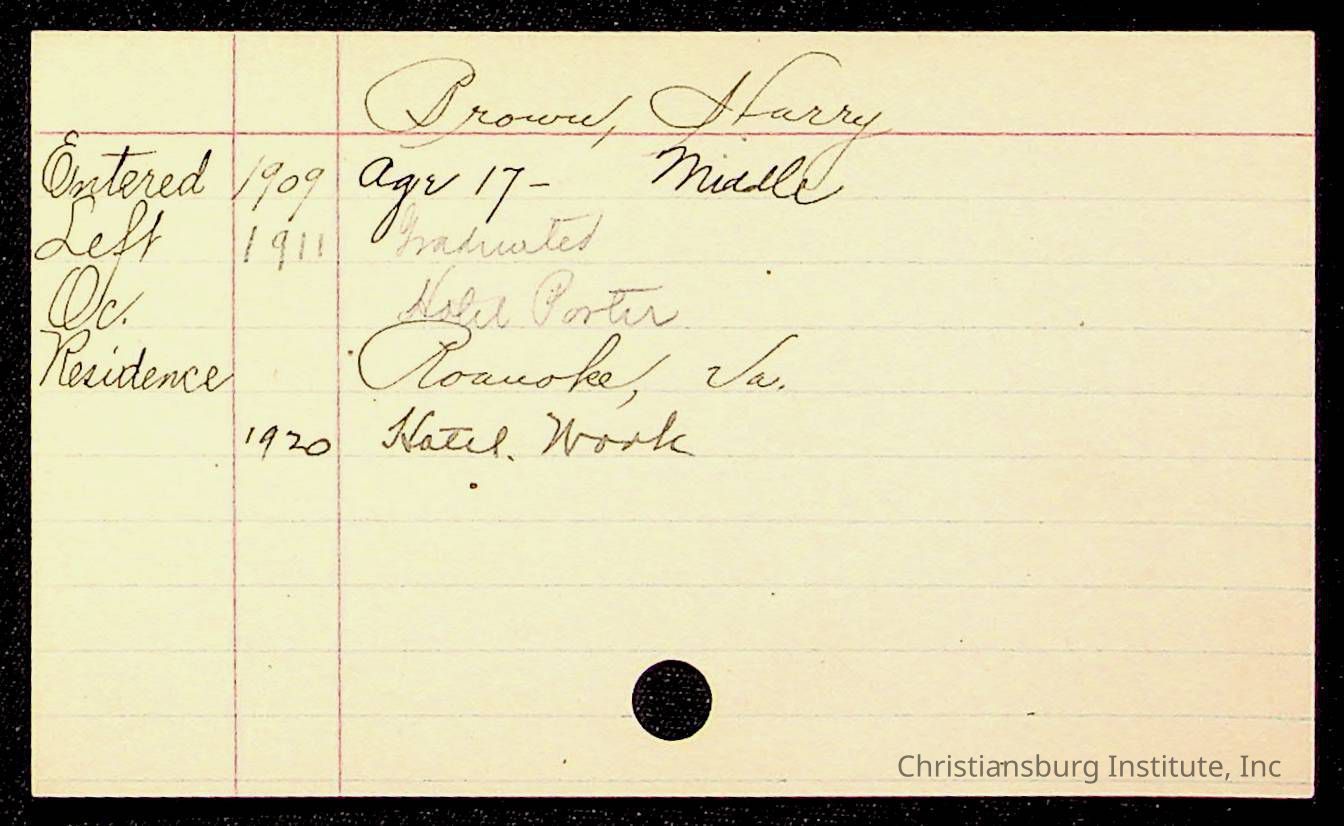 Brown, Harry
Entered 1909 Age 17- Middle
Left 1911 Graduated
Oc. Hotel Porter
Residence Roanoke, Va.
1920 Hotel. Work
Christiansburg Institute, Inc